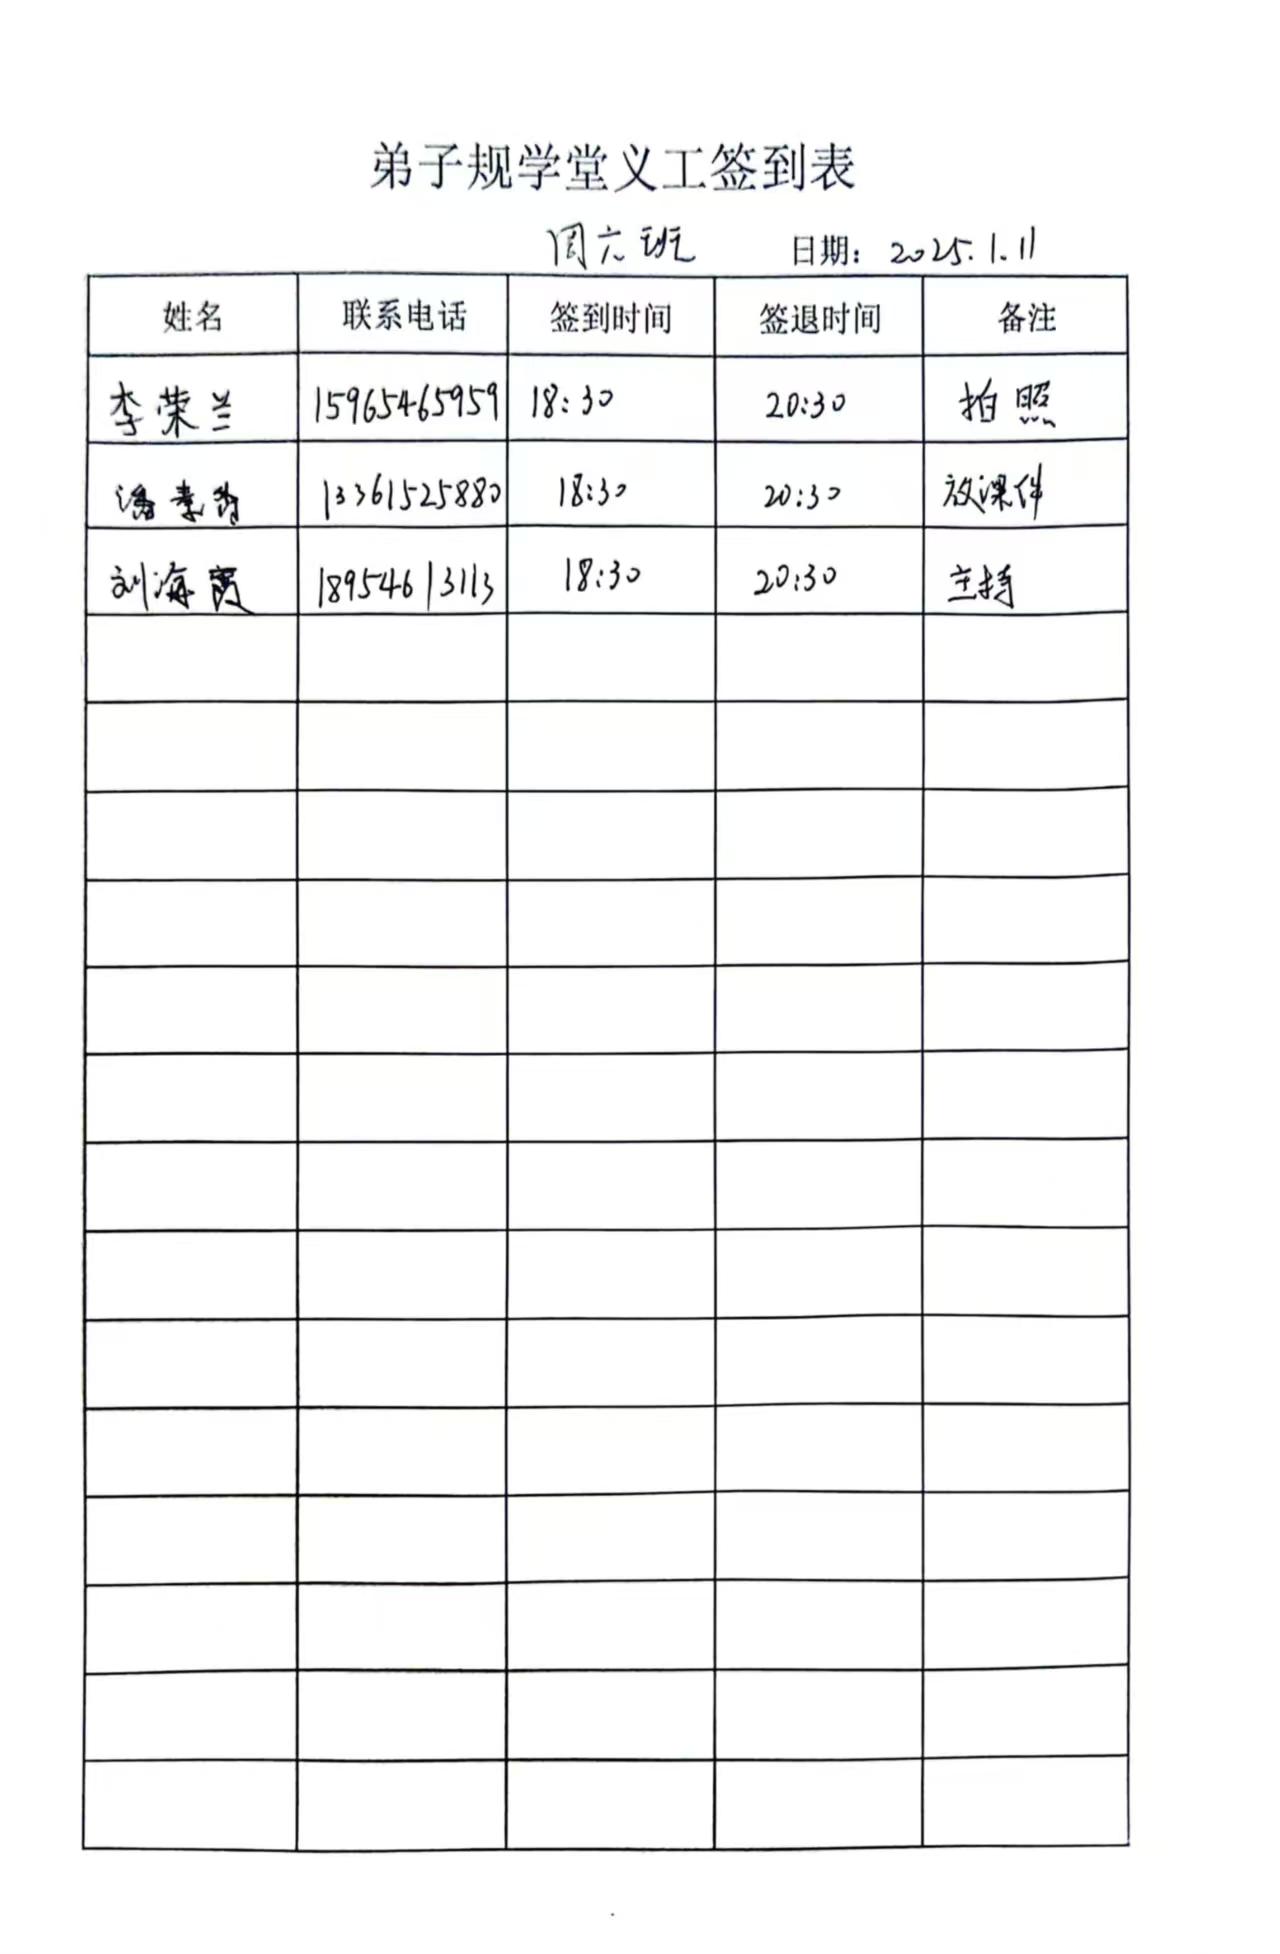 弟子规学堂义工签到表
周六班 日期：2025.1.11
姓名 联系电话 签到时间 签退时间 备注
李荣兰 15965465959 18:30 20:30 拍照
潘素 13361525880 18:30 20:30 放课件
刘海霞 18954613113 18:30 20:30 主持